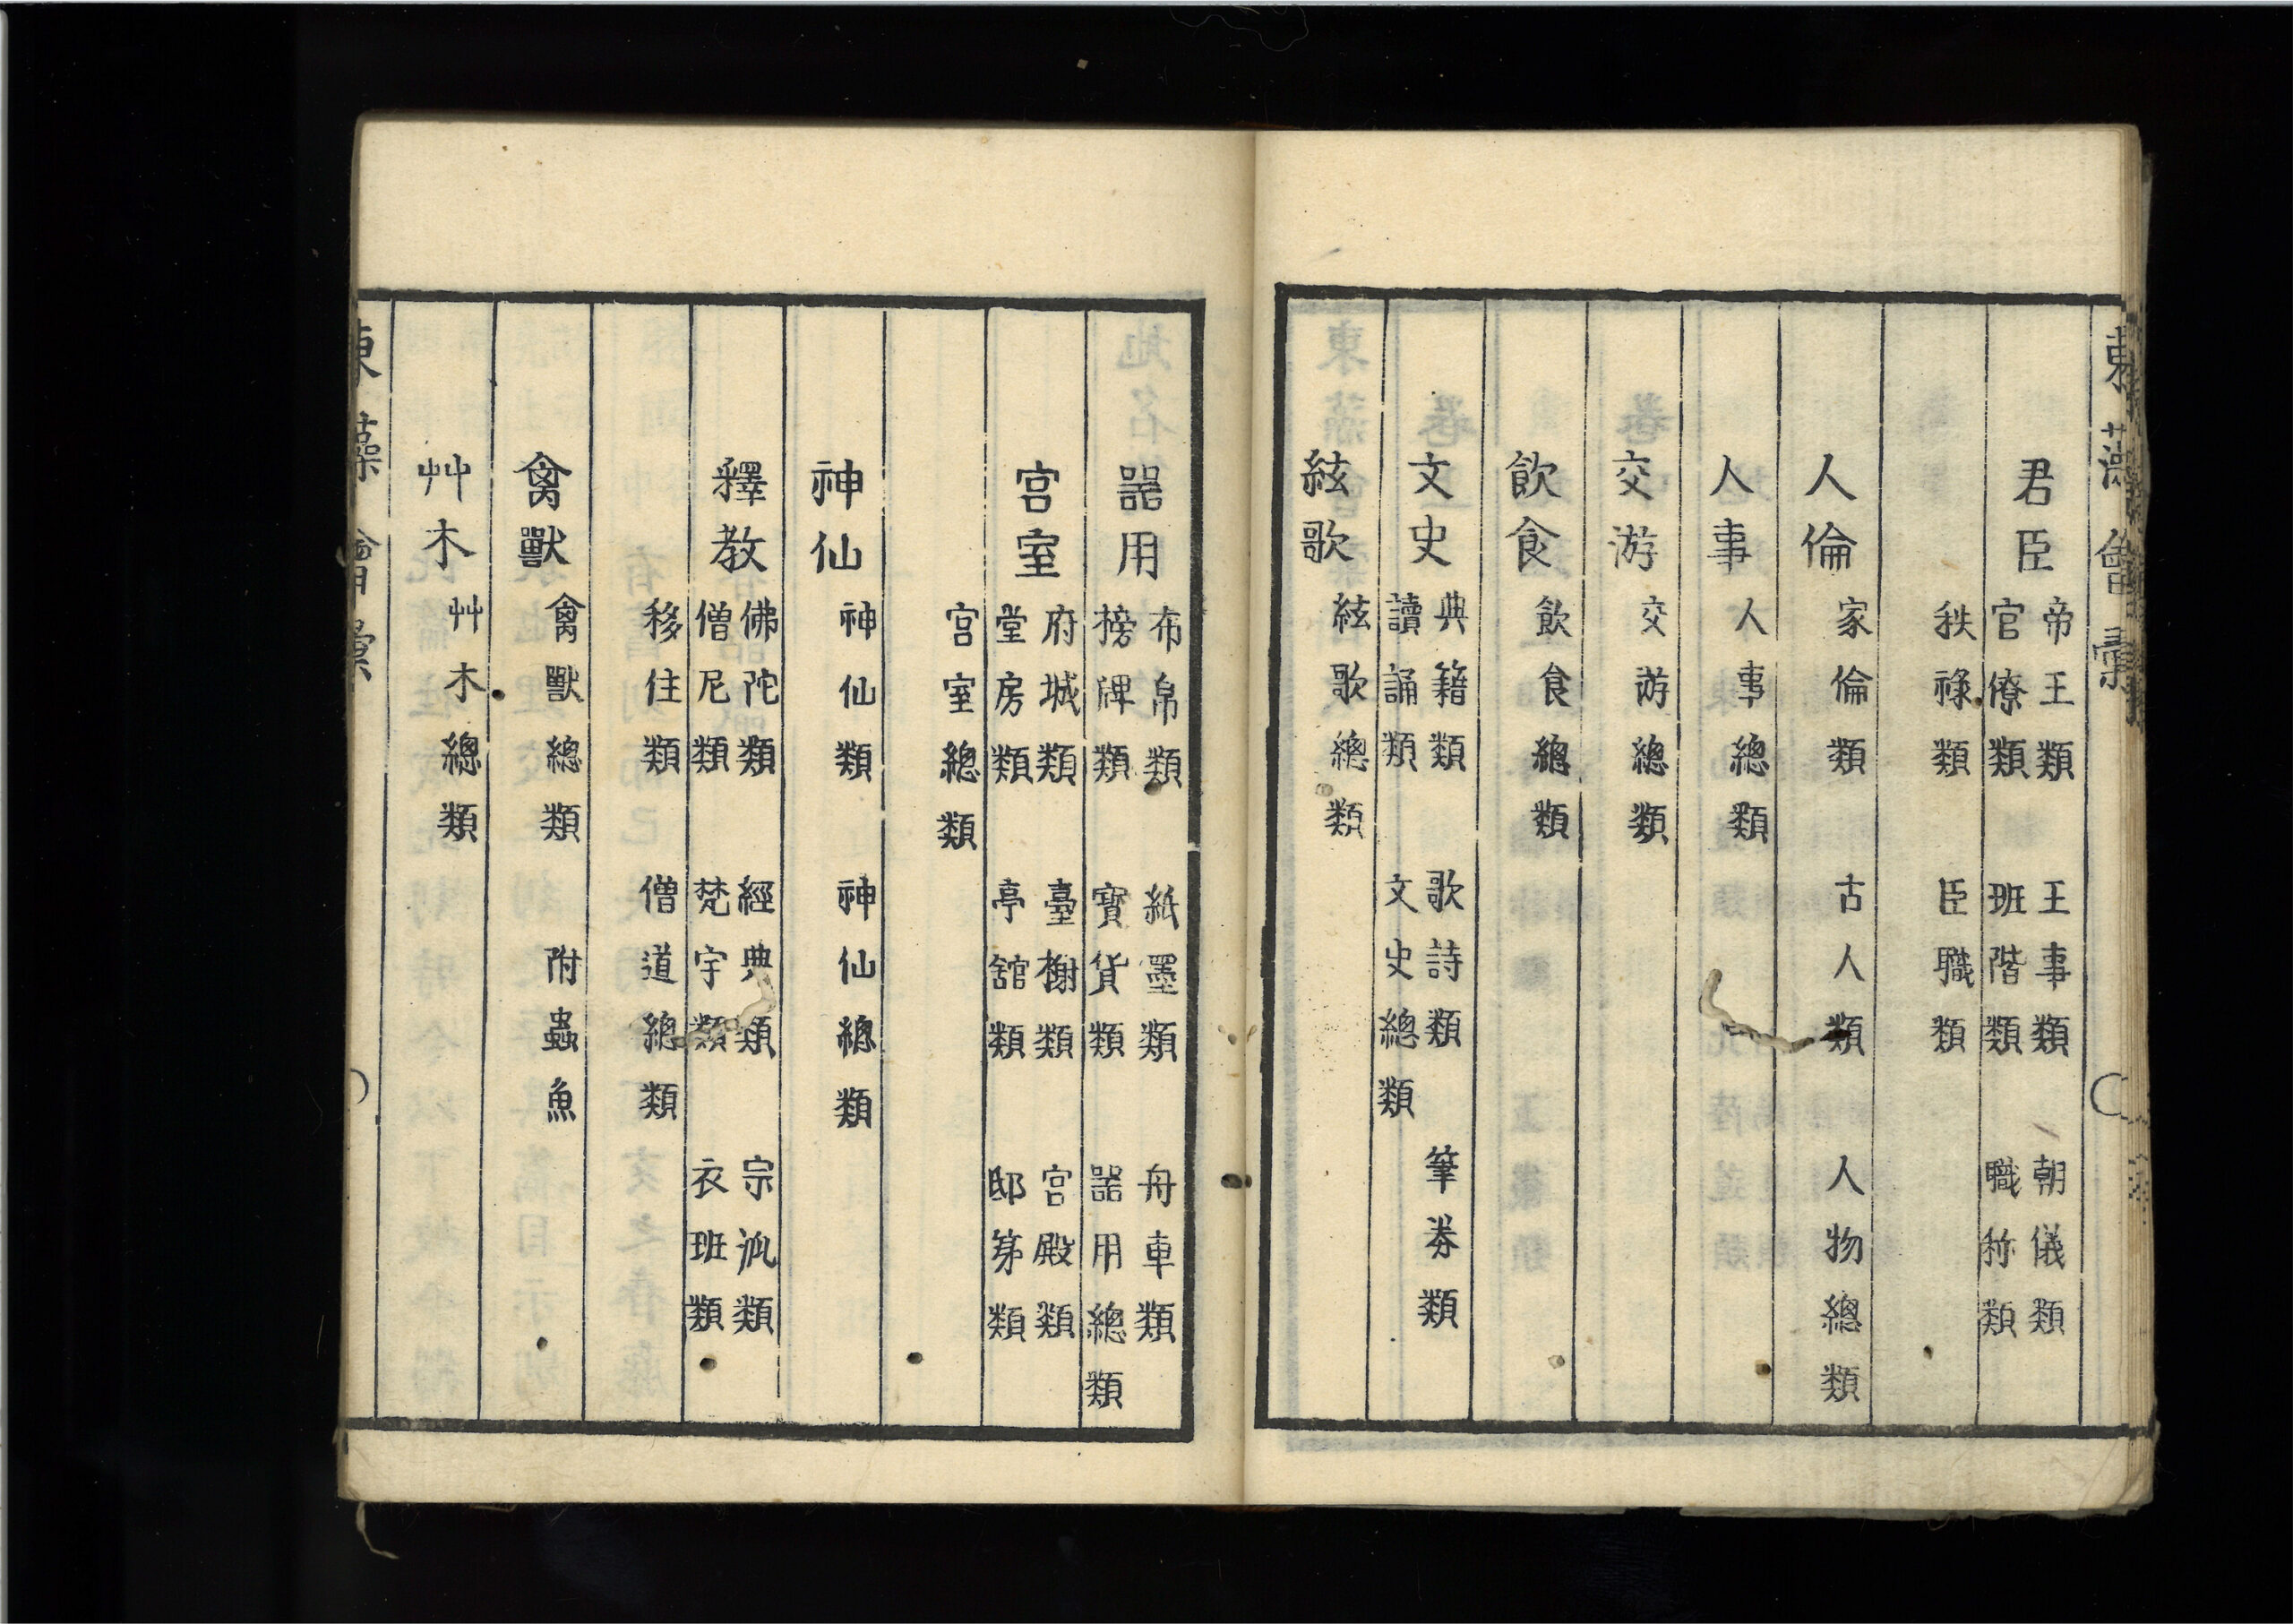 東藻會彙
君臣 帝王類 王事類 朝儀類
官僚類 班階類 職称類
秩祿類 臣職類
人倫 家倫類 古人類 人物總類
人事 人事總類
交游 交游總類
飲食 飲食總類
文史 典籍類 歌詩類 筆券類
讀誦類 文史總類
絃歌 絃歌總類
器用 布帛類 紙墨類 舟車類
榜碑類 寶貨類 器用總類
宮室 府城類 臺榭類 宮殿類
堂房類 亭舘類 邸第類
宮室總類
神仙 神仙類 神仙總類
釋教 佛陀類 經典類 宗派類
僧尼類 梵宇類 衣班類
移住類 僧道總類
禽獸 禽獸總類 附蟲魚
艸木 艸木總類
東藻會彙